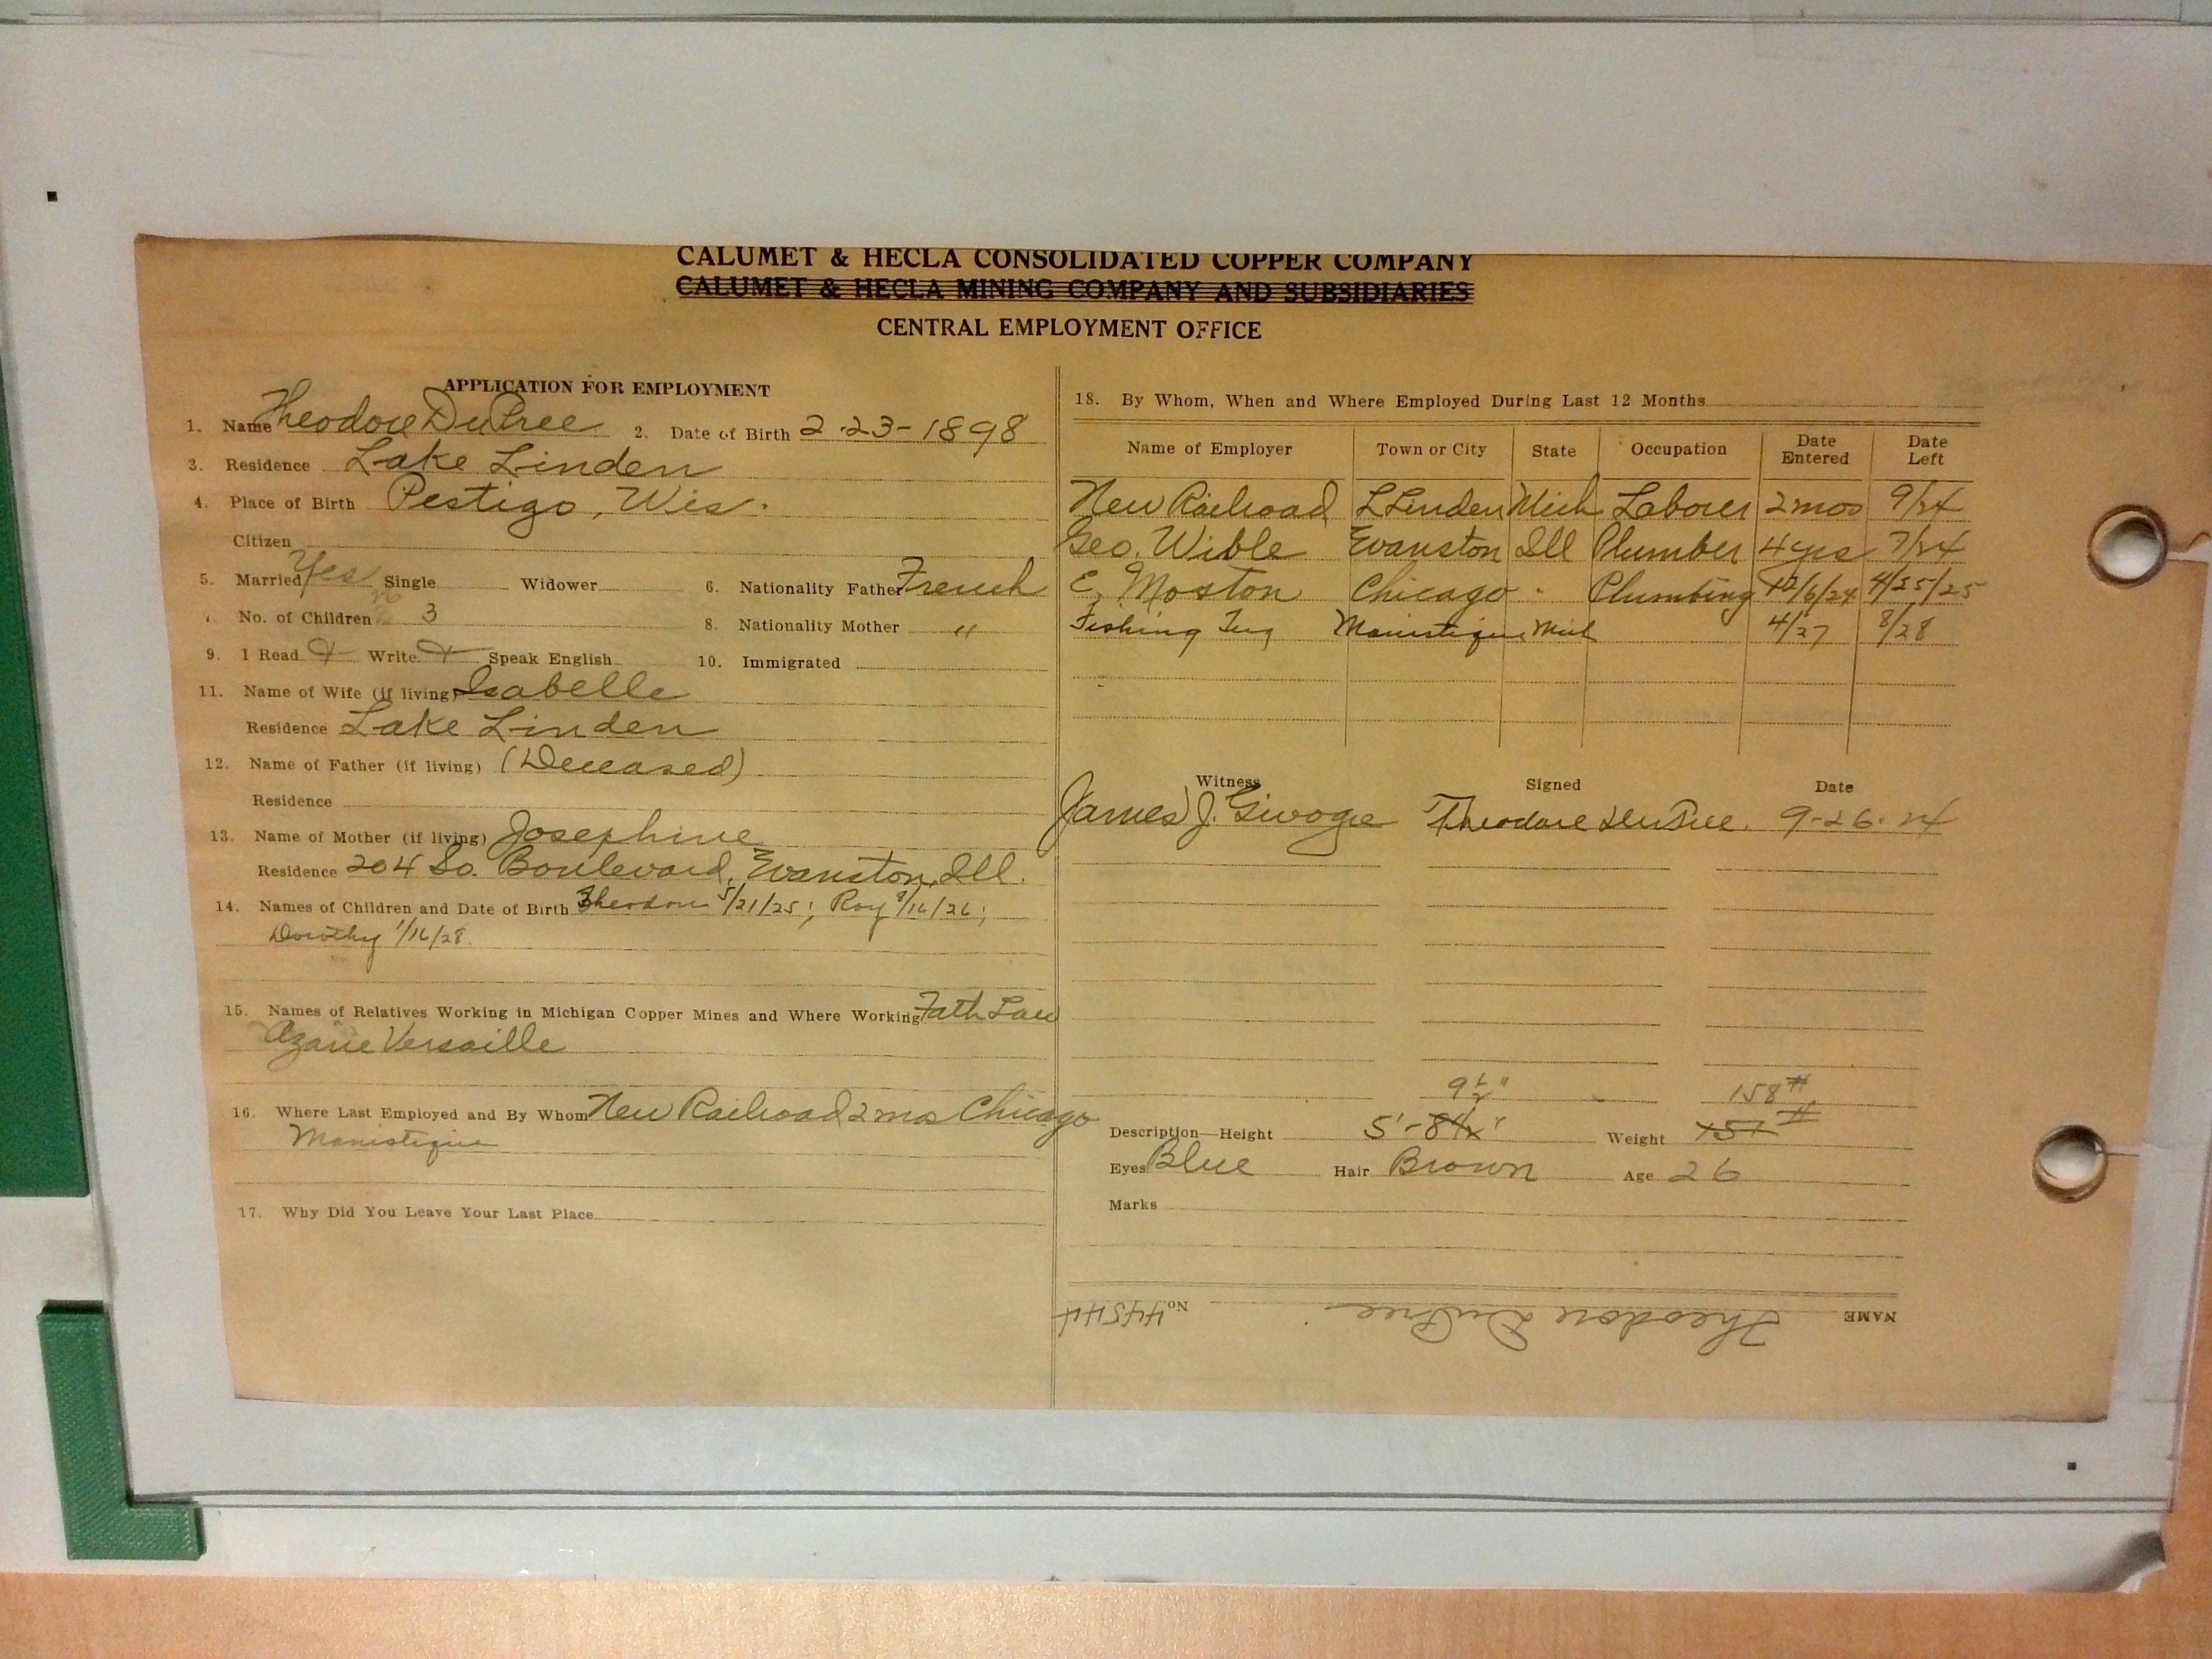 CALUMET & HECLA CONSOLIDATED COPPER COMPANY
CALUMET & HECLA MINING COMPANY AND SUBSIDIARIES
CENTRAL EMPLOYMENT OFFICE
APPLICATION FOR EMPLOYMENT
1. Name Theodore DuPree 2. Date of Birth 2-23-1898
3. Residence Lake Linden
4. Place of Birth Pestigo, Wis.
Citizen
5. Married Yes Single Widower 6. Nationality Father French
No. of Children 3 8. Nationality Mother "
9. I Read + Write + Speak English 10. Immigrated
11. Name of Wife (if living) Isabelle
Residence Lake Linden
12. Name of Father (if living) (Deceased)
Residence
13. Name of Mother (if living) Josephine
Residence 204 So. Boulevard, Evanston, Ill.
14. Names of Children and Date of Birth Theodore 5/21/25; Roy /16/26;
Dorothy 1/16/28
15. Names of Relatives Working in Michigan Copper Mines and Where Working Fath Law
Azarie Versaille
16. Where Last Employed and By Whom New Railroad 2 mos Chicago
Manistique
17. Why Did You Leave Your Last Place
18. By Whom, When and Where Employed During Last 12 Months
Name of Employer Town or City State Occupation Date Entered Date Left
New Railroad L Linden Mich Laborer 2 mos 9/24
Geo. Wible Evanston Ill Plumber 4 yrs 7/24
E. Moston Chicago " Plumbing 12/6/24 4/25/25
Fishing Tug Manistique Mich 4/27 8/28
Witness Signed Date
James J. Theodore DuPree. 9-26-24
9½" 158#
Description—Height 5'-8½" Weight 151#
Eyes Blue Hair Brown Age 26
Marks
NAME Theodore DuPree No. 44544